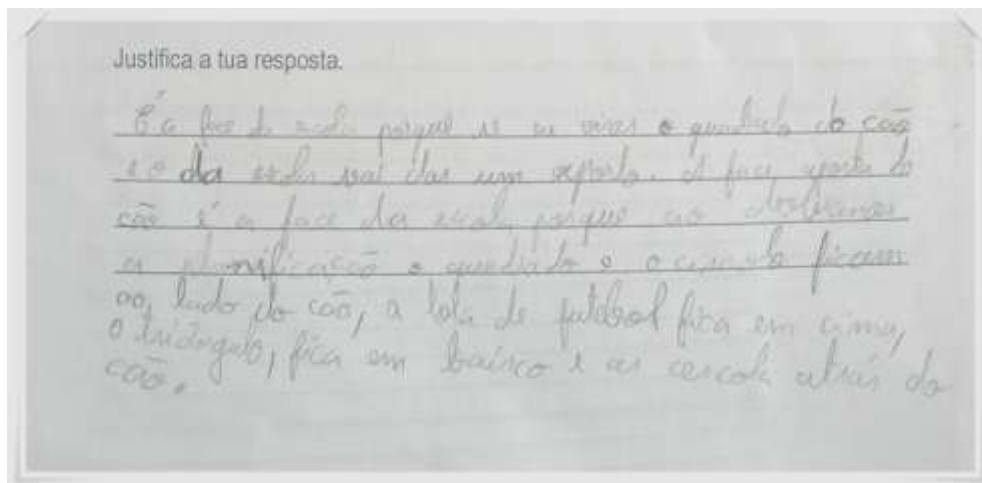 Justifica a tua resposta.
É a face da escola porque se eu virar o quadrado do cão
e o da escola vai dar um oposto. A face oposta do
cão é a face da escola, porque ao
a planificação o quadrado e o ficam
ao, lado do cão, a bola de futebol fica em cima,
o triângulo, fica em baixo e a escola atrás do
cão.